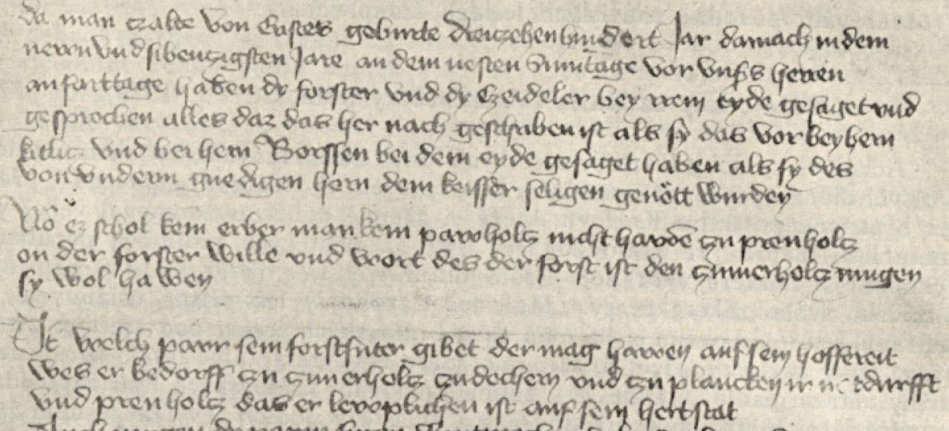 da man czalte von Cristes geburte dreiczehenhundert Jar darnach in dem
newn und sibenczigsten Jare an dem nesten Suntage vor unsers herren
anfarttage haben dy forster und dy Czeideler bey irem eyde gesaget und
gesprochen alles daz das her nach geschriben ist als sy das vor bey hern
kitlicz und bei hern Borssen bei dem eyde gesaget haben als sy des
von underm gnedigen hern dem keisser seligen genött wurden
No ez schol kein erber man kein pawholcz nicht hawen zu prenholcz
on der forster wille und wort des der forst ist den zimerholcz mugen
sy wol hawen
It welch pawr sein forstfuter gibet der mag hawen auf sein hoffereit
wes er bedorff zu zimerholcz zu dechern und zu plancken
und prenholcz das er lewplichen ist auf sein hertstat